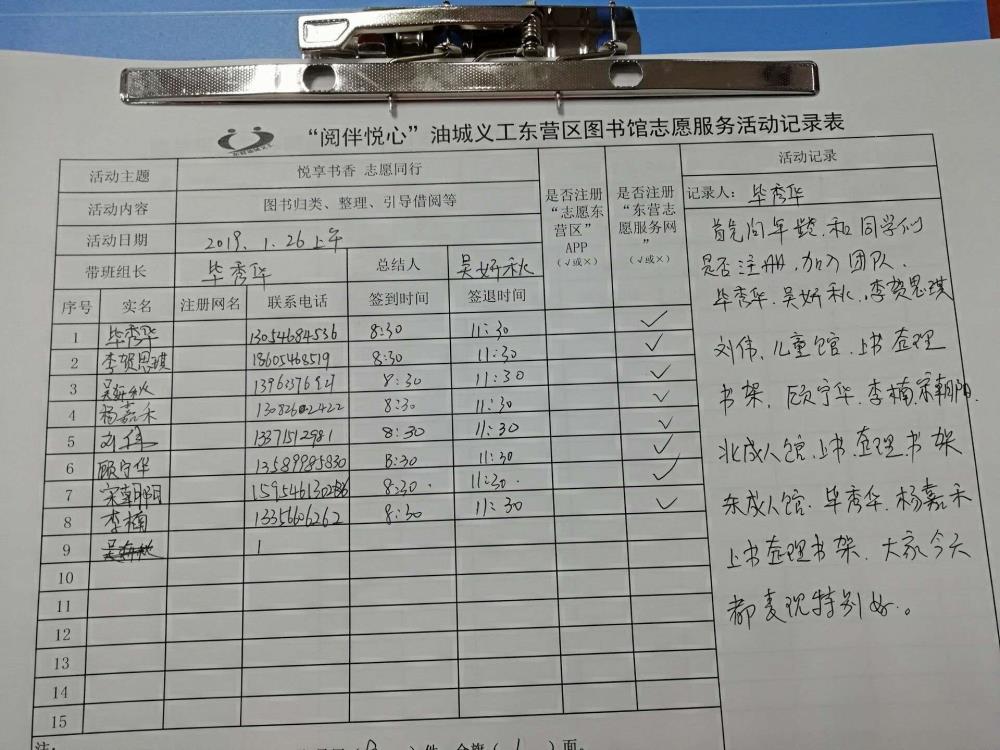 “阅伴悦心”油城义工东营区图书馆志愿服务活动记录表
活动主题 悦享书香 志愿同行
活动内容 图书归类、整理、引导借阅等
活动日期 2019.1.26上午
带班组长 毕秀华 总结人 吴妍秋
是否注册“志愿东营区”APP（√或×）
是否注册“东营志愿服务网”（√或×）
序号 实名 注册网名 联系电话 签到时间 签退时间
1 毕秀华 13054684536 8:30 11:30 √
2 李贺思琪 18605468519 8:30 11:30 √
3 吴妍秋 8:30 11:30 √
4 杨嘉禾 13082602422 8:30 11:30 √
5 刘伟 13371512981 8:30 11:30 √
6 顾宁华 13589985830 8:30 11:30 √
7 宋朝阳 8:30 11:30 √
8 李楠 13356606262 8:30 11:30 √
9 吴妍秋 1
10
11
12
13
14
15
活动记录
记录人：毕秀华
首先问年龄.和同学们
是否注册.加入团队、
毕秀华.吴妍秋.李贺思琪
刘伟、儿童馆.上书整理
书架.顾宁华.李楠宋朝阳.
北成人馆.上书.整理.书架
东成人馆.毕秀华.杨嘉禾
上书整理书架.大家今天
都表现特别好.。
注: